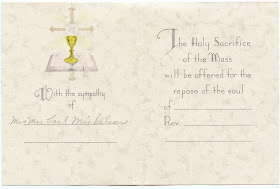 With the sympathy
of
Mr & Mrs
The Holy Sacrifice
of the Mass
will be offered for the
repose of the soul
of
Rev.